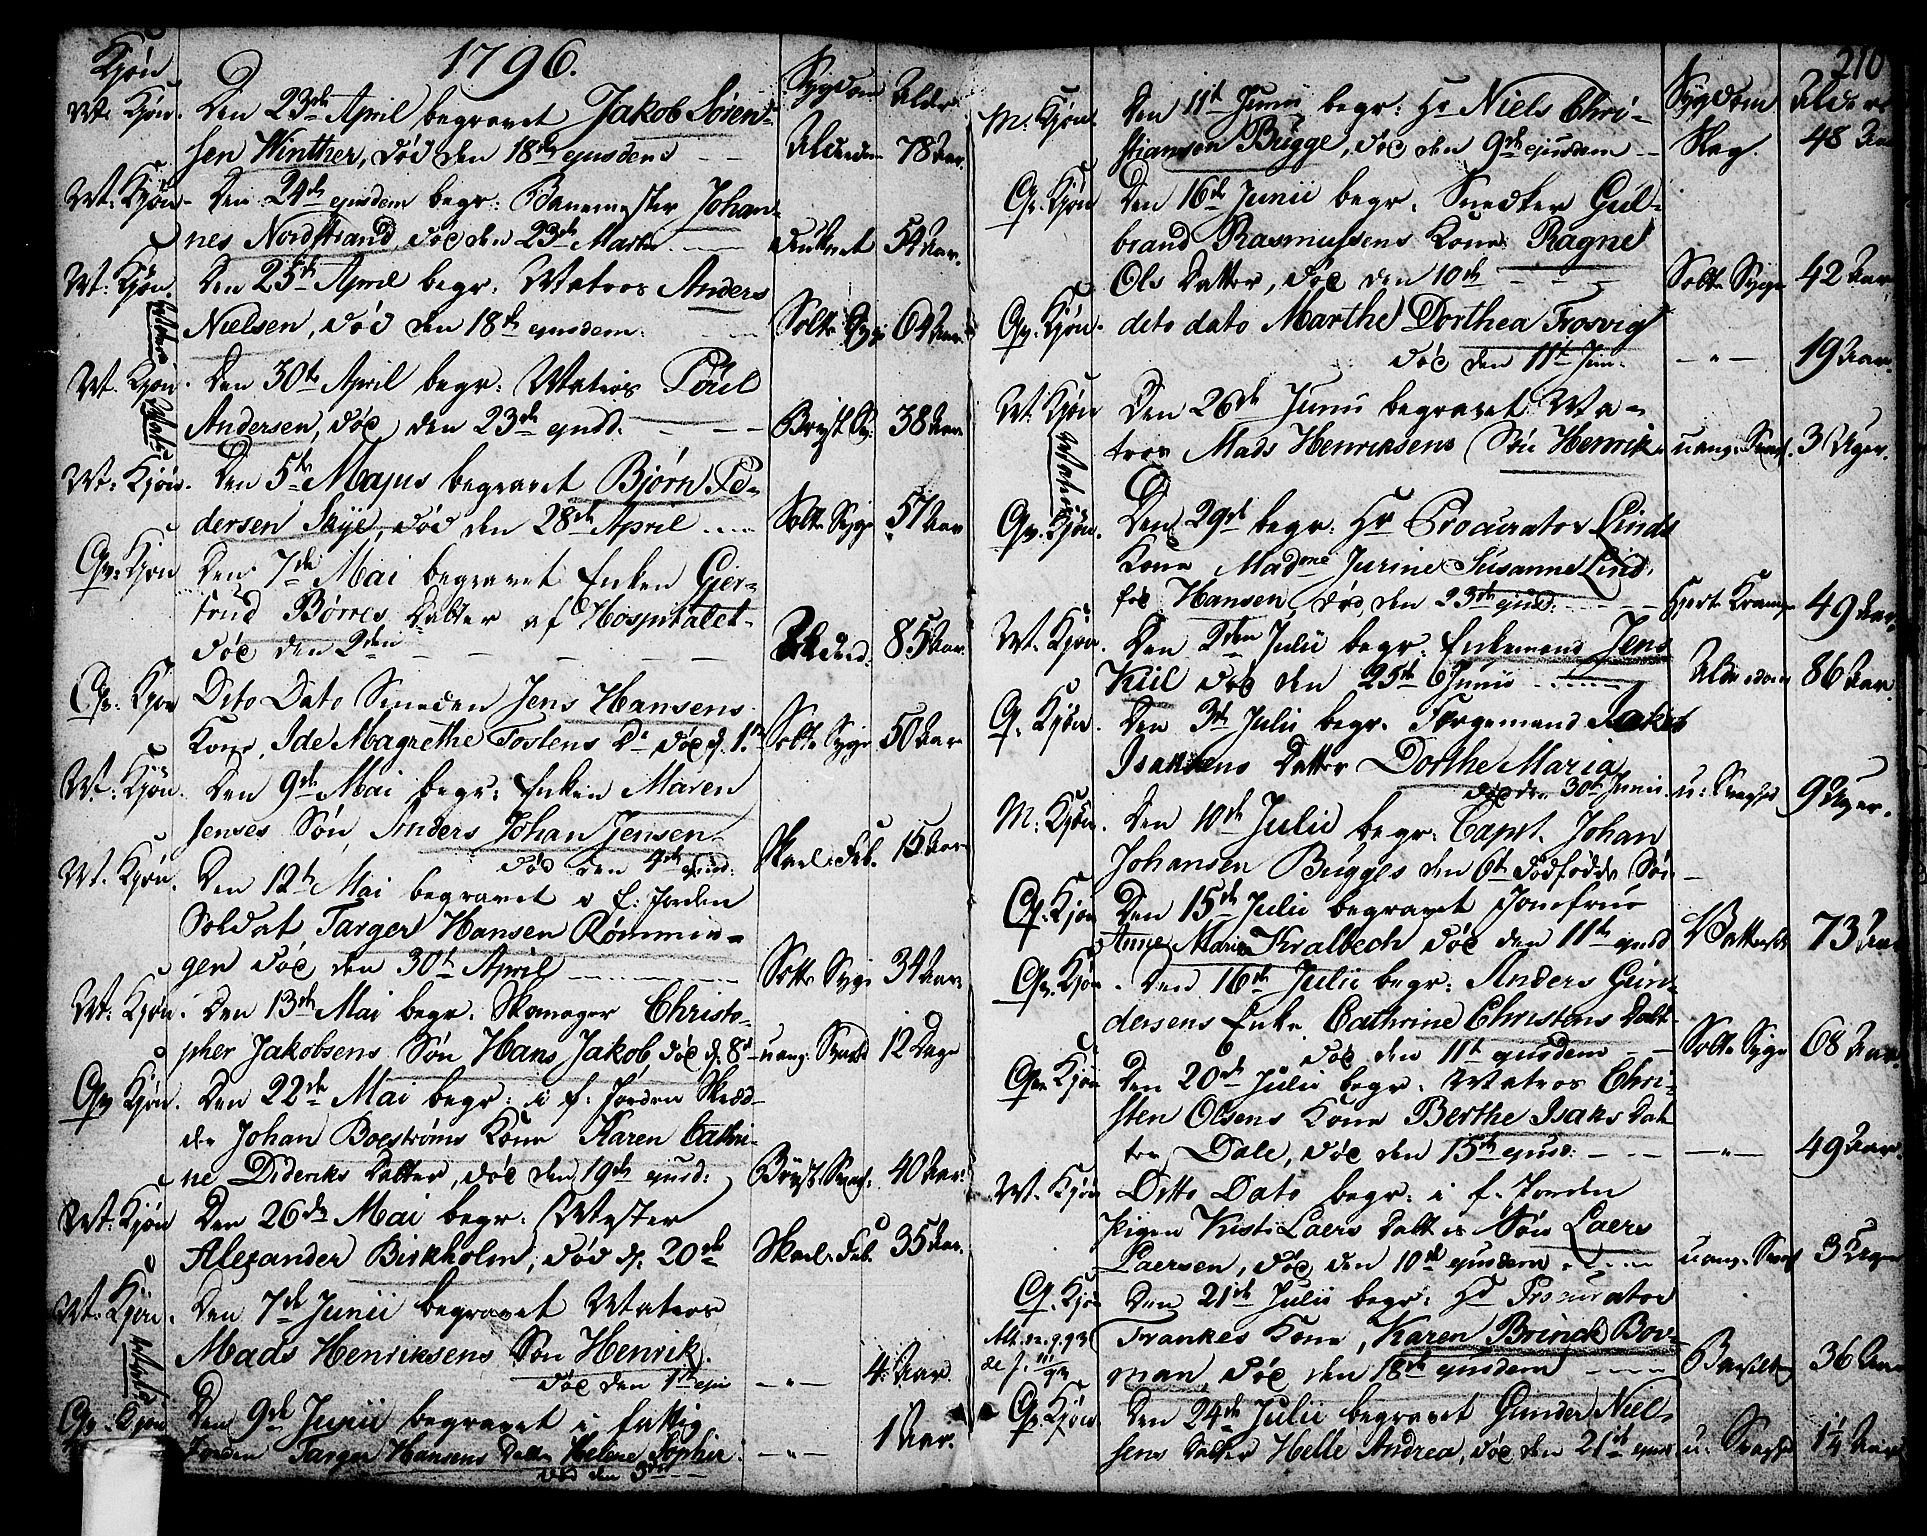 Kjön
1796.
Sygdom Alder
M: Kjön. Den 23de April begravet Jakob Sören-
sen Winther, död den 18de ejusdem Alderdom 78 Aar.
M: Kjön. Den 24de ejusdem begr: Johan-
nes Nordstrand död den 23de Martii druknet 54 Aar.
M: Kjön. Den 25de April begr: Matros Anders
Nielsen, död den 18de ejusdem. Sotte Syge 64 Aar
M. Kjön. Den 30te April begr: Matros Poul
Andersen, död den 23de ejusd. Bryst Sy: 38 Aar
M: Kjön. Den 5te Majus begravet Björn Pe-
dersen Skye, död den 28de April Sotte Syge 57 Aar
Qv: Kjön Den 7de Mai begravet Enken Gjer-
trud Börres Datter af Hospitalet
död den 2den Alderd. 85 Aar.
Qv. Kjön Dito Dato Smeden Jens Hansens
Kone, Ide Magrethe Tostens Dr död d. 1ste Sotte Syge 50 Aar
M: Kjön. Den 9de Mai begr: Enken Maren
Jenses Sön Anders Johan Jensen
död den 4de ejusd. Skarl: Feb. 15 Aar
M. Kjön. Den 12te Mai begravet i f: Jorden
Soldat Targer Hansen Römmin-
gen död den 30te April Sotte Syge 34 Aar
M: Kjön. Den 13de Mai begr. Skomager Christo-
pher Jakobsens Sön Hans Jakob död d. 8de uang: Svagh 12 Dage
Qv Kjön. Den 22de Mai begr: i f: Jorden Skræd-
der Johan Boeströms Kone Karen Cathri-
ne Dideriks Datter, död den 19de ejusd: Bryst Svag: 40 Aar.
M: Kjön Den 26de Mai begr:
Alexander Birkholm, död d. 20de Skarl: Feb. 35 Aar.
M: Kjön. Den 7de Junii begravet Matros
Mads Henriksens Sön Henrik
död den 1ste eju — „ — 4 Aar.
Qv. Kjön Den 9de Junii begravet i fattig
Jorden Targer Hansens Datter Helene Sophie
död den 3die — „ — 1 Aar.
210
Sygdom Alder
M. Kjön. Den 11te Junii begr: Hr Niels Chri-
stianson Brügge, död den 9de ejusdem Slag. 48 Aar
Qv. Kjön Den 16de Junii begr. Snedker Gul-
brand Rasmussens Kone Ragne
Ols Datter, död den 10de Sotte Syge 42 Aar
Qv. Kjön. dito dato Marthe Dorthea Trosvig
död den 11te Jun. — „ — 19 Aar.
M. Kjön Den 26de Junii begravet Ma-
tros Mads Henriksens Sön Henrik uang: Svagh. 3 Uger.
Qv. Kjön. Den 29de begr: Hr Procurator Linds
Kone Madme Jurine Susanne Lind,
föd Hansen, död den 23de ejusd. Hierte Krampe 49 Aar.
M. Kjön. Den 2den Julii begr: Enkemand Jens
Kiil död den 25de Junii Alderdom 86 Aar
Q. Kjön. Den 3de Julii begr. Færgemand Jakob
Isaksens Datter Dorthe Maria
död den 30te Junii. u: Svaghed 9 Uger.
M: Kjön. Den 10de Julii begr: Capt. Johan
Johansen Bugges den 6te dödfödde Sön
Qv. Kjön Den 15de Julii begravet Jomfrue
Anne Maria Kralbech död den 11te ejusd Vattersot 73 Aar
Qv. Kjön. Den 16de Julii begr: Anders Gun-
dersens Enke Cathrine Christens Datt.
död den 11te ejusdem Sotte Syge 68 Aar.
Qv. Kjön Den 20de Julii begr. Matros Chri-
sten Olsens Kone Berthe Isaks Dat-
ter Dale, död den 15de ejusd: — „ — 49 Aar.
M. Kjön Ditto Dato begr: i f. Jorden
Pigen Kisti Laers Datters Sön Laers
Laersen, död den 10de ejusdem uang: Svagh 3 Uger
Q. Kjön Den 21de Julii begr: Hr Procurator
Frankes Kone, Karen Brinck Bor-
man, död den 18de ejusdem Barsel 36 Aar
Qv. Kjön. Den 24de Julii begravet Gunder Niel-
sens Datter Helle Andrea, död den 21de ejusd u: Svaghd 1¼ Aar